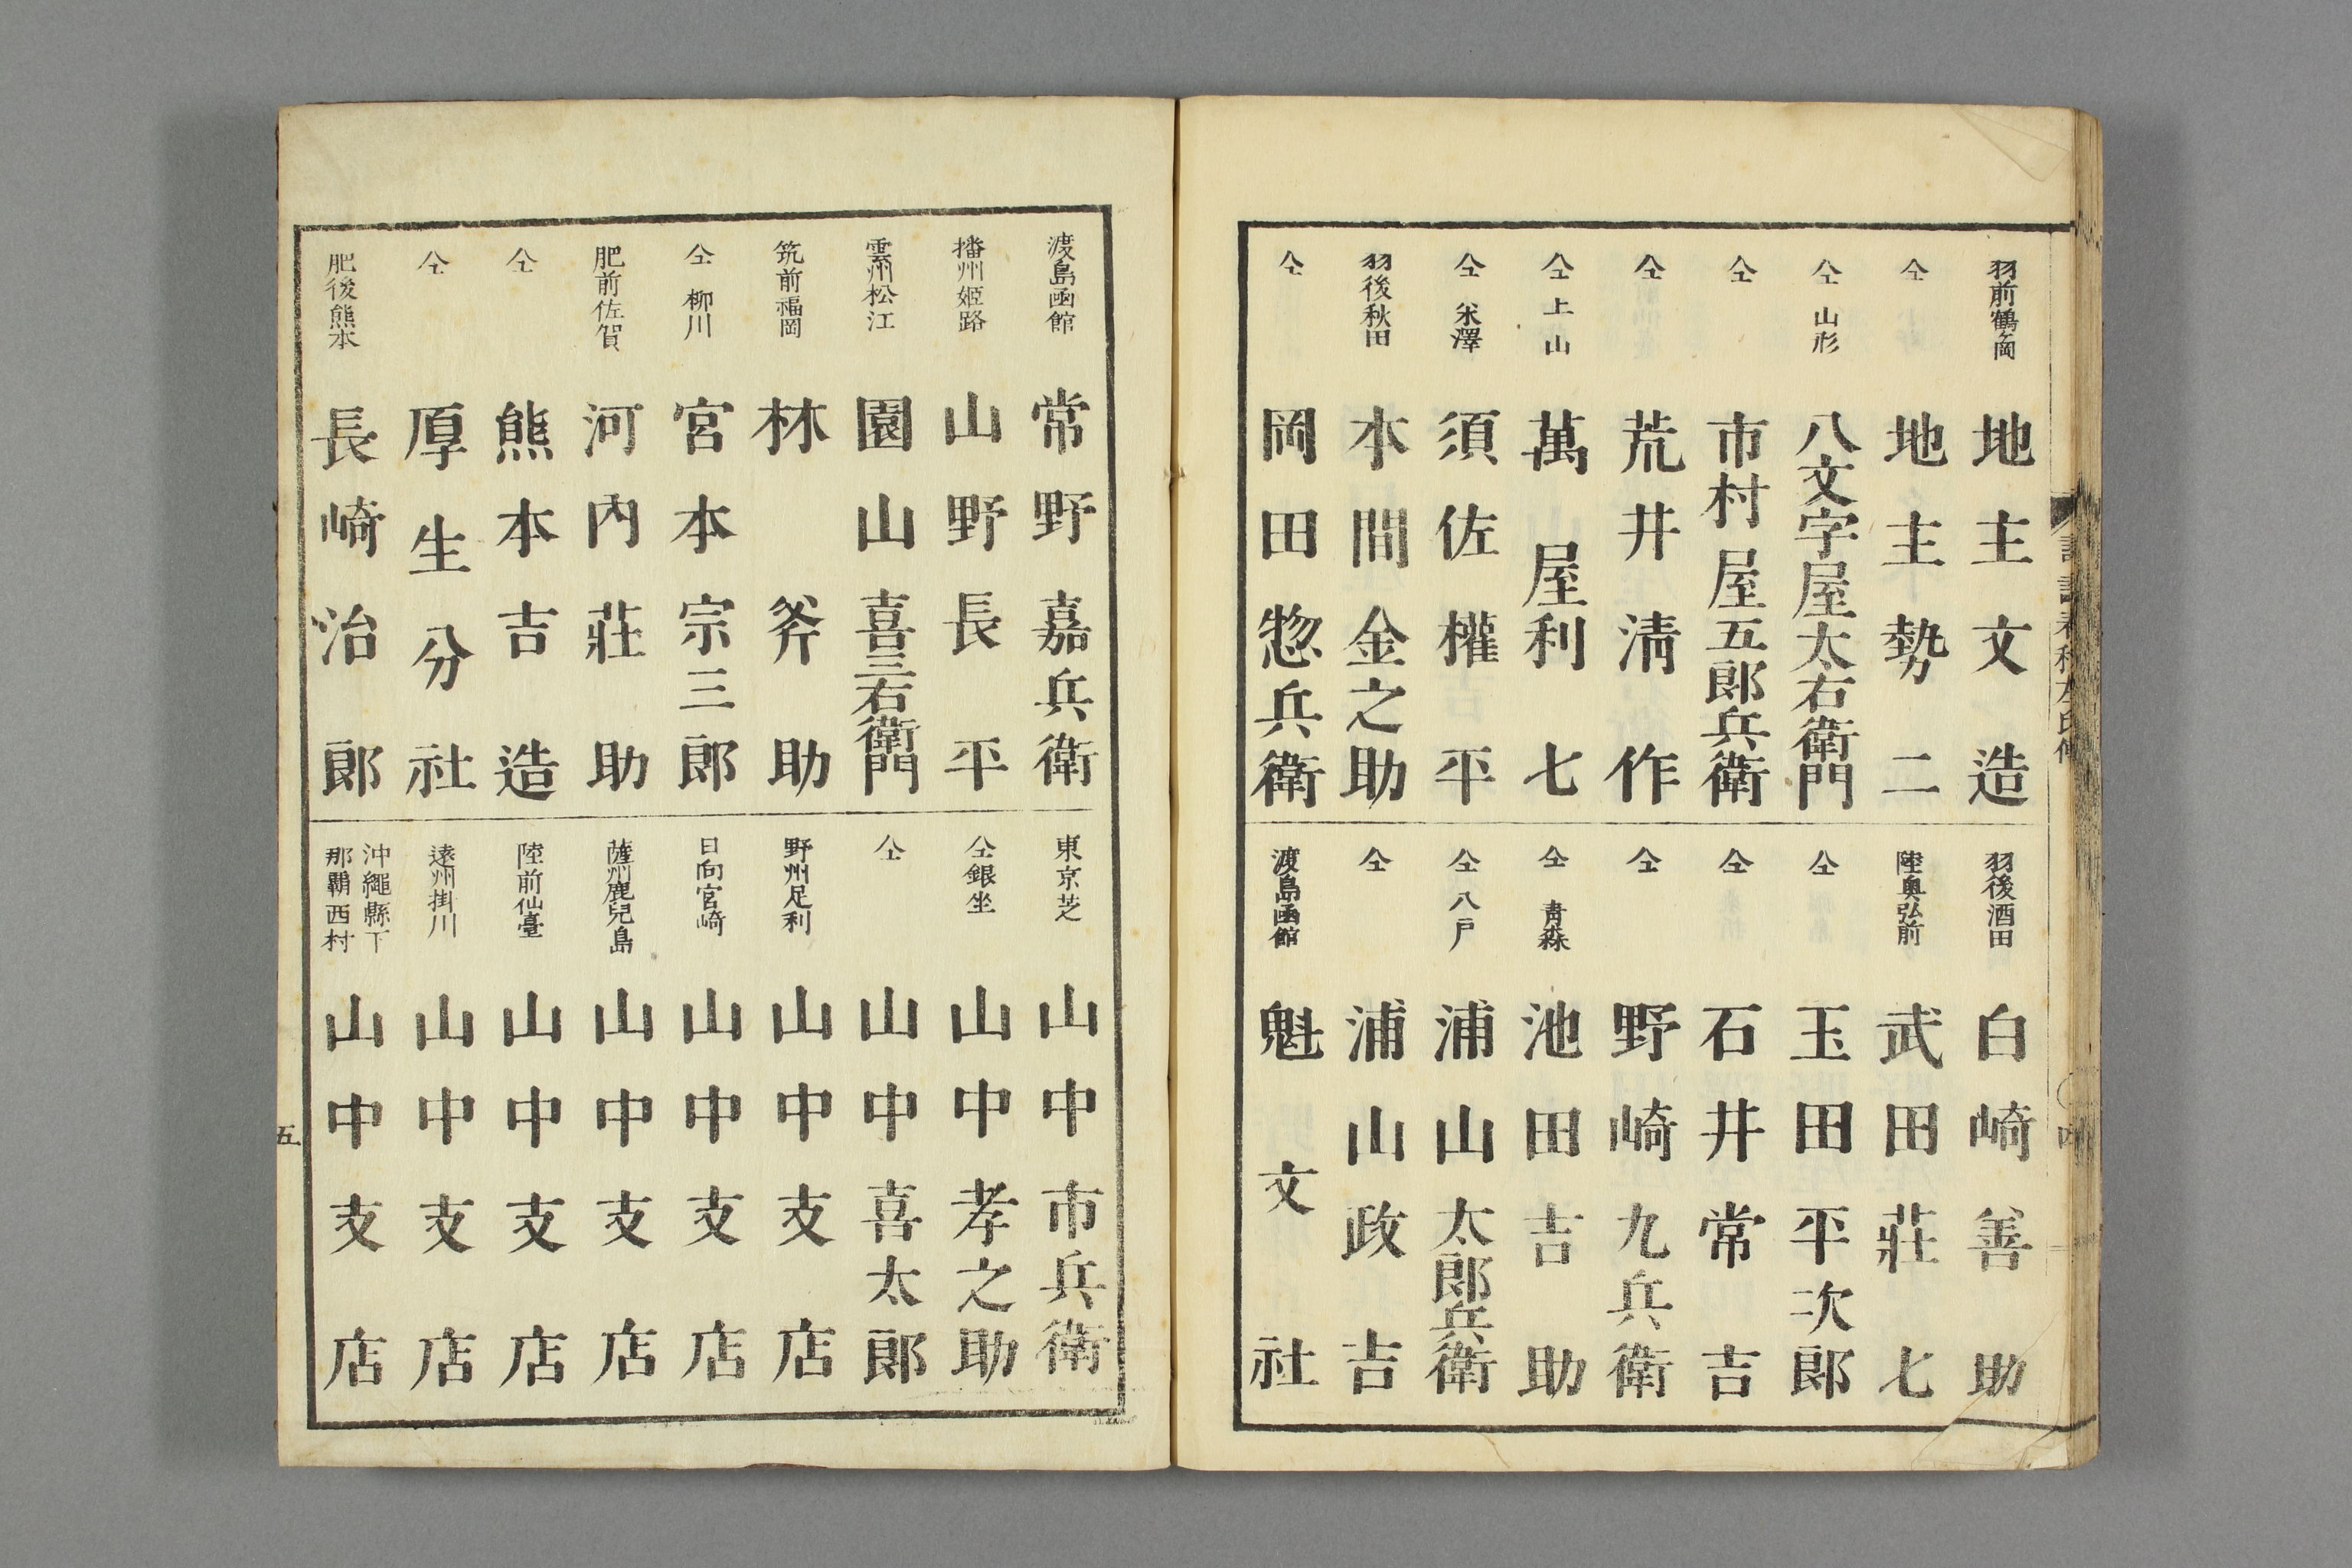 羽前鶴ヶ岡 地主文造
仝 地主勢二
仝 山形 八文字屋太右衛門
仝 市村屋五郎兵衛
仝 荒井淸作
仝 上山 萬屋利七
仝 米澤 須佐權平
羽後秋田 本間金之助
仝 岡田惣兵衛
羽後酒田 白崎善助
陸奥弘前 武田莊七
仝 玉田平次郎
仝 石井常吉
仝 野崎九兵衛
仝 靑森 池田吉助
仝 八戸 浦山太郎兵衛
仝 浦山政吉
渡島函館 魁文社
渡島函館 常野嘉兵衛
播州姫路 山野長平
雲州松江 園山喜三右衛門
筑前福岡 林斧助
仝 柳川 宮本宗三郎
肥前佐賀 河内莊助
仝 熊本吉造
仝 厚生分社
肥後熊本 長崎治郎
東京芝 山中市兵衛
仝銀坐 山中孝之助
仝 山中喜太郎
野州足利 山中支店
日向宮崎 山中支店
薩州鹿兒島 山中支店
陸前仙臺 山中支店
遠州掛川 山中支店
沖繩縣下那覇西村 山中支店
五